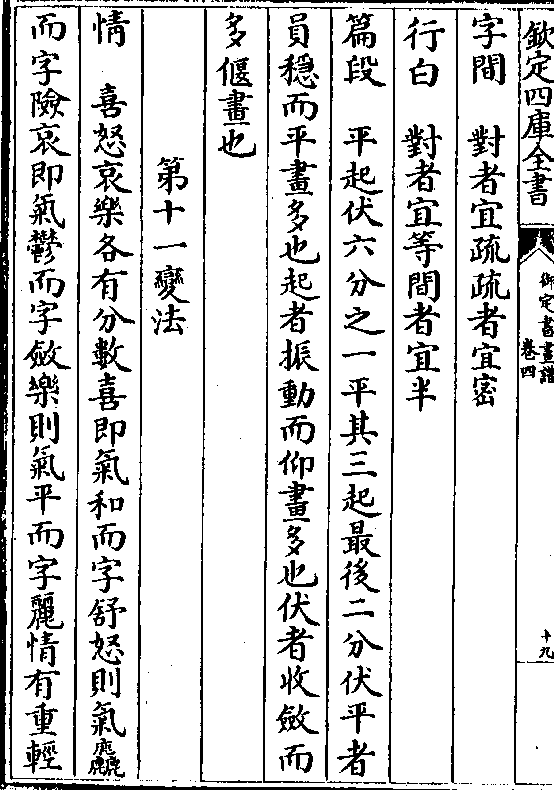 欽定四庫全書
御定書畫譜
卷四
十九
字間　對者宜疏疏者宜密
行白　對者宜等間者宜半
篇段　平起伏六分之一平其三起最後二分伏平者
員穩而平畫多也起者振動而仰畫多也伏者收斂而
多偃畫也
第十一變法
情　喜怒哀樂各有分數喜即氣和而字舒怒則氣麤
而字險哀即氣鬱而字斂樂則氣平而字麗情有重輕